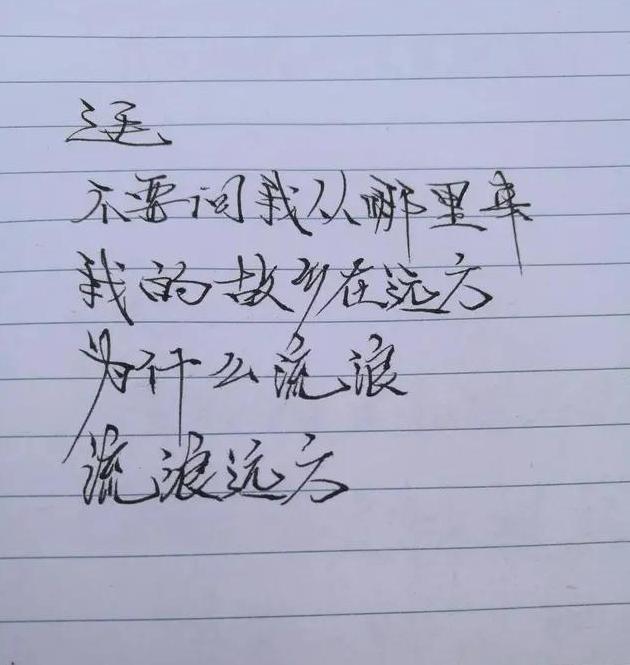 不要问我从哪里来
我的故乡在远方
为什么流浪
流浪远方